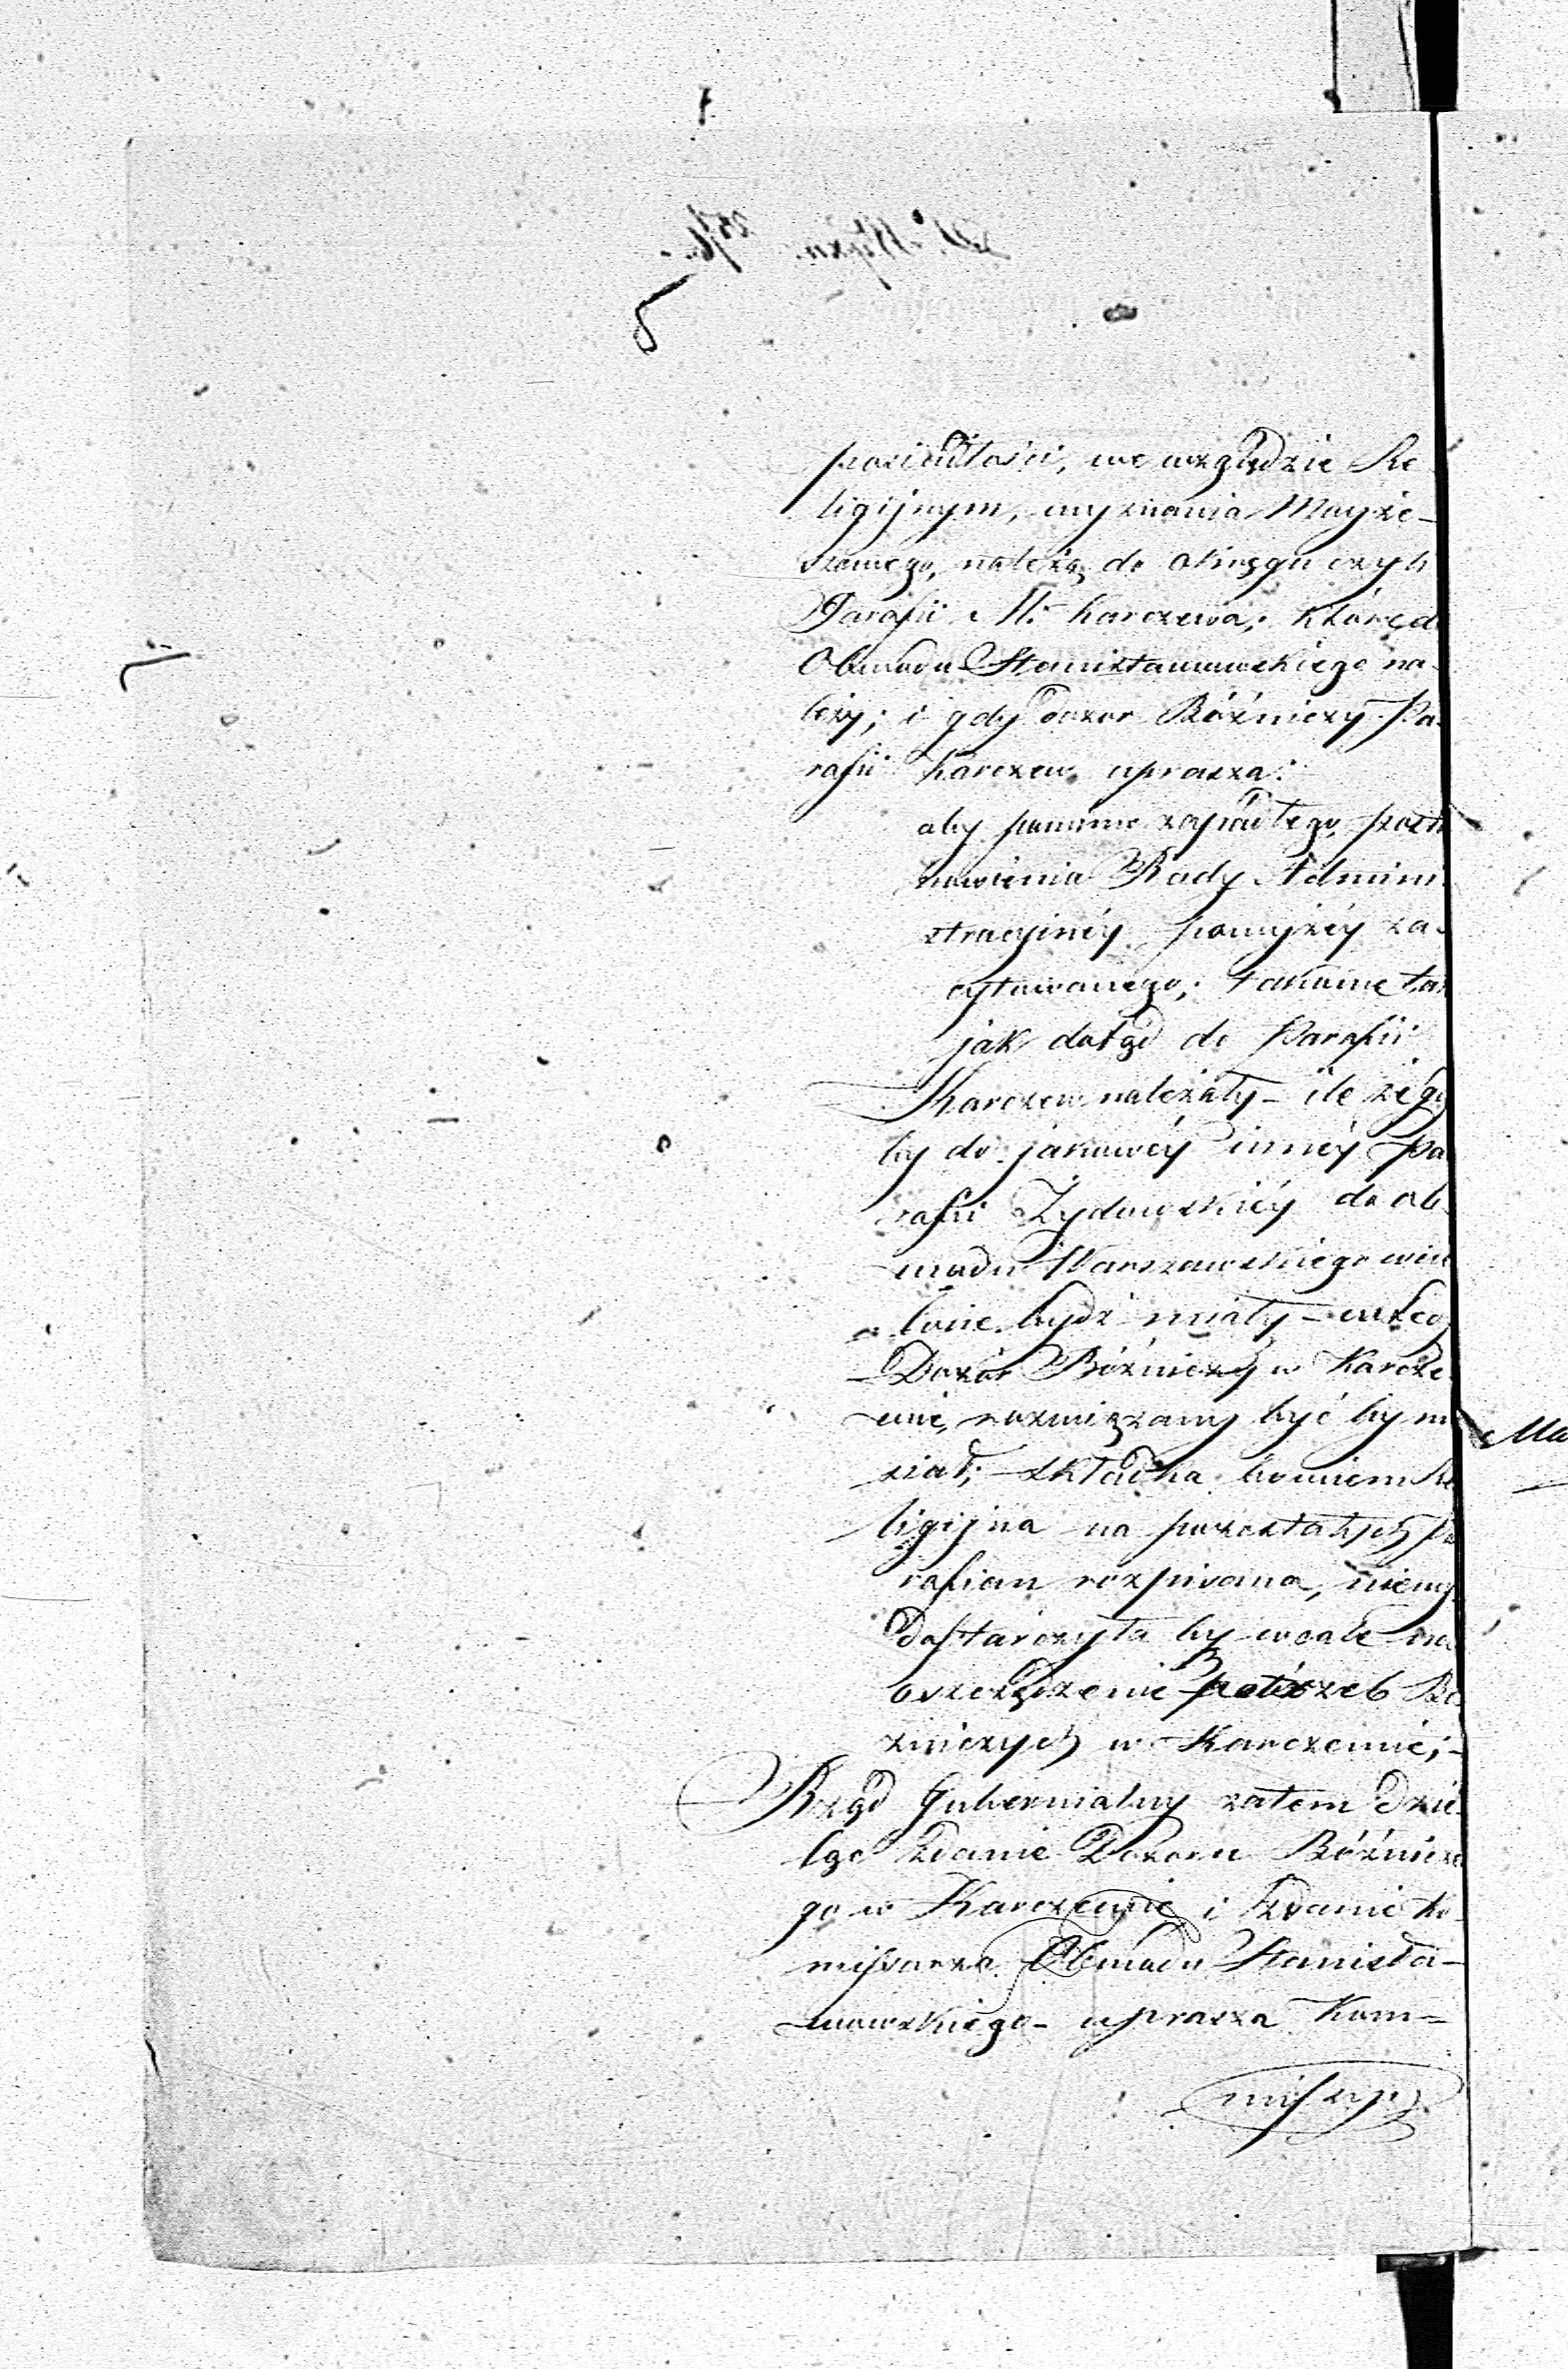 posiadłości, we względzie Re-
ligijnym, wyznania Mojże-
szowego, należą do okręgu czyli
Parafii M. Karczewa; które do
Obwodu Stanisławowskiego na-
leży; i gdy dozor Bóżniczy Pa-
rafii Karczew uprasza:
aby pomimo zapadłego, posta
nowienia Rady Admini-
stracyjnéy powyżéy za-
cytowanego; takowe tak
jak dotąd do Parafii
Karczew należały – ile że gdy
by do jakowéy innéy Pa
rafii Żydowskiéy do ob-
wodu Warszawskiego wcie
lone bydź miały –
Dozór Bóżniczy w Karcze-
wie, rozwiązany być by mu
siał; składka bowiem Re
ligijna na pozostałych Pa
rafian rozpisana, niewy
dostarczyła by wcale na
oszczędzenie potrzeb Bo
żniczych w Karczewie; –
Rząd Gubernialny zatem dzie-
ląc zdanie Dozoru Bóżnicze
go w Karczewie i zdanie Ko-
missarza Obwodu Stanisła-
wowskiego – uprasza Kom=
missyi
Ma